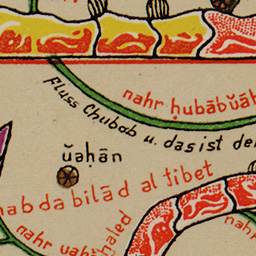 nahr ḥubābŭāh
fluss Chubab u. das ist de
ŭaḥān
nabda bilād al ṫibet
nahr ŭah
haled
nahr